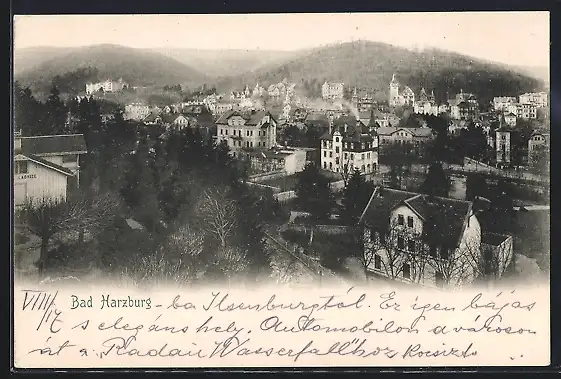 VIII/17 Bad Harzburg - ba Ilsenburgtól. Ez igen bájos
s elegáns hely. Automobilon a városon
át a Radau Wasserfallhoz kocsizás